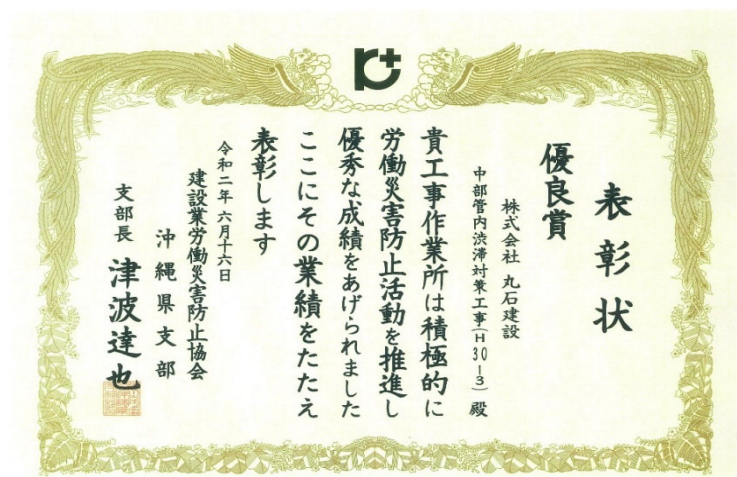 表彰状
優良賞
株式会社 丸石建設
中部管内渋滞対策工事(H30-3) 殿
貴工事作業所は積極的に
労働災害防止活動を推進し
優秀な成績をあげられました
ここにその業績をたたえ
表彰します
令和二年六月十六日
建設業労働災害防止協会
沖縄県支部
支部長 津波達也